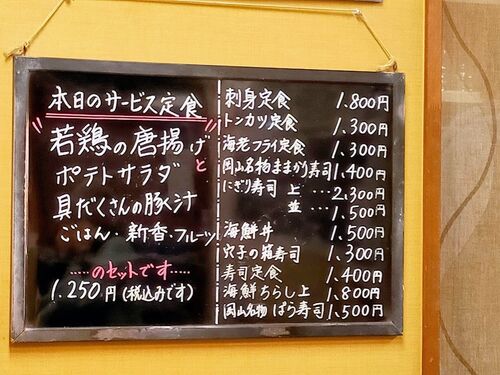 本日のサービス定食
"若鶏の唐揚げ"と
ポテトサラダ
具だくさんの豚汁
ごはん・新香・フルーツ
……のセットです……
1.250円(税込みです)
刺身定食 1,800円
トンカツ定食 1,300円
海老フライ定食 1,300円
岡山名物ままかり寿司 1,400円
にぎり寿司 上 … 2,300円
並 … 1,500円
海鮮丼 1,500円
穴子の箱寿司 1,300円
寿司定食 1,400円
海鮮ちらし上 1,800円
岡山名物 ばら寿司 1,500円